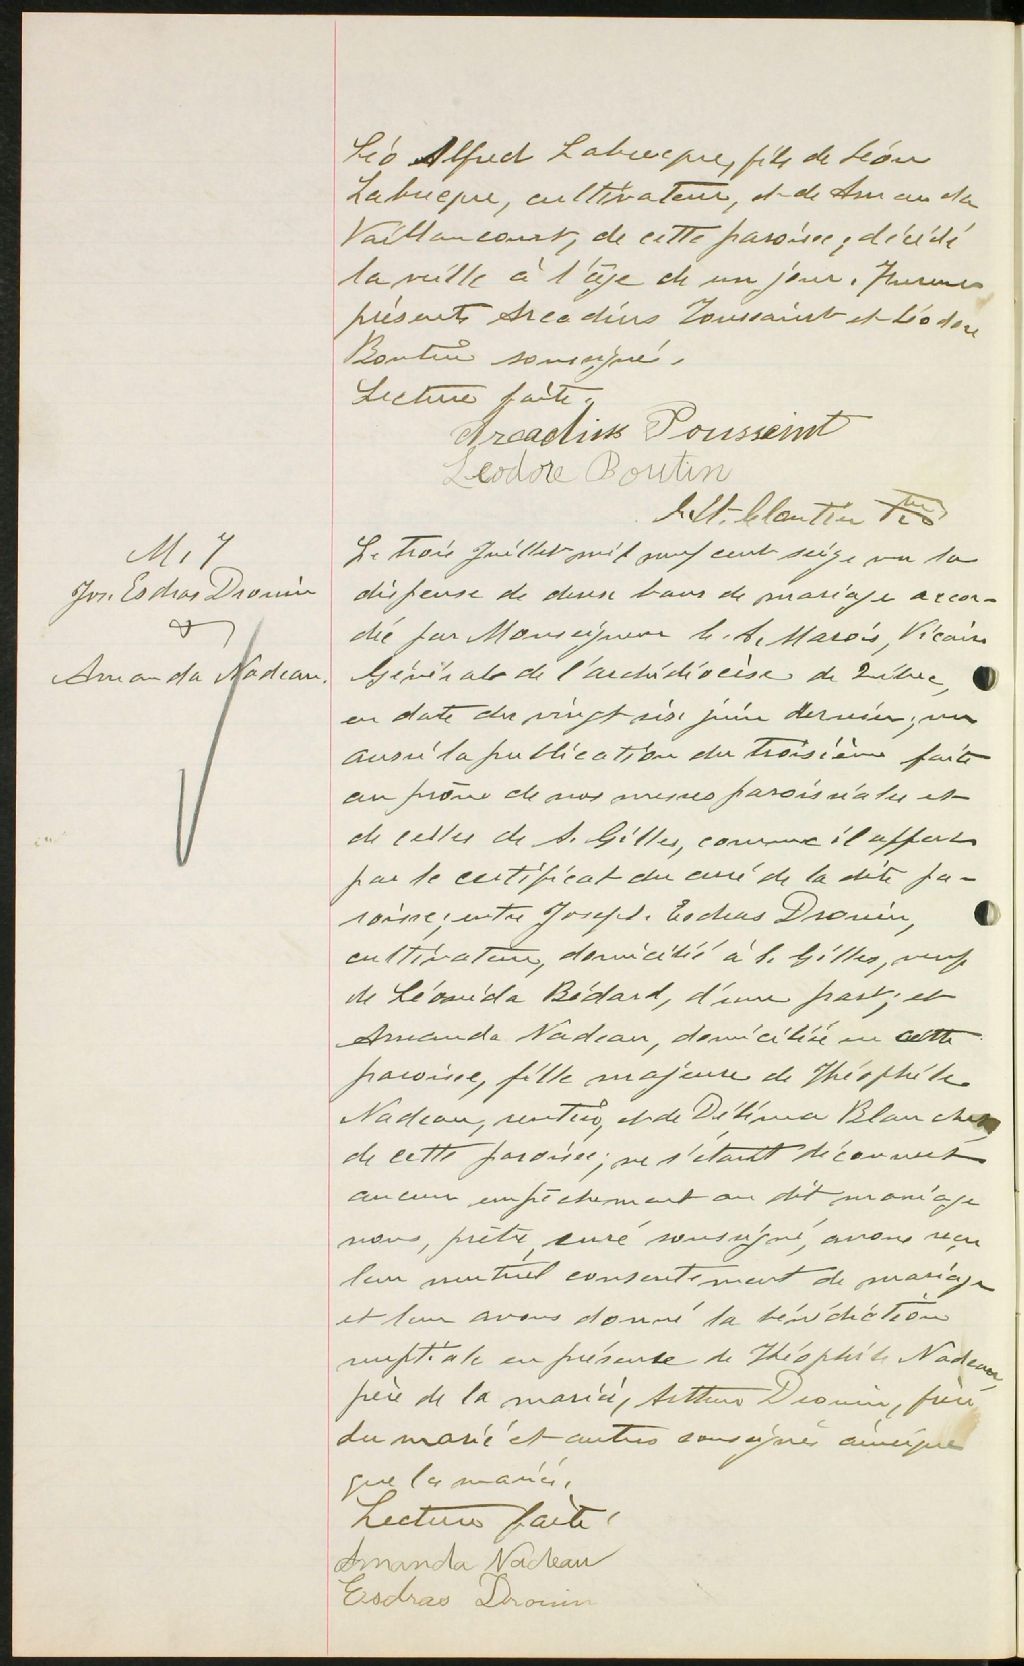 Léo Alfred Labrecque, fils de Léon
Labrecque, cultivateur, et de Amanda
Vaillancourt, de cette paroisse; décédé
la veille à l'âge de un jour. Furent
présents Arcadius Toussaint et Léodore
Boutin soussignés.
Lecture faite.
Arcadius Toussaint
Leodore Boutin
Cloutier Ptre
M. 7
Jos. Esdras Drouin
&
Amanda Nadeau.
Le trois Juillet mil neuf cent seize vu la
dispense de deux bans de mariage accor-
dée par Monseigneur C. A. Marois, Vicaire
Général de l'archidiocèse de Québec,
en date du vingt six juin dernier; vu
aussi la publication du troisième faite
au prône de nos messes paroissiales et
de celles de S. Gilles, comme il appert
par le certificat du curé de la dite pa-
roisse; entre Joseph Esdras Drouin,
cultivateur, domicilié à S. Gilles, veuf
de Léonida Bédard, d'une part; et
Amanda Nadeau, domiciliée en cette
paroisse, fille majeure de Théophile
Nadeau, rentier, et de Délima Blanchet
de cette paroisse; ne s'étant découvert
aucun empêchement au dit mariage
nous, prêtre, curé soussigné, avons reçu
leur mutuel consentement de mariage
et leur avons donné la bénédiction
nuptiale en présence de Théophile Nadeau,
père de la mariée, Arthur Drouin, frère
du marié et autres soussignés ainsi que
que les mariés.
Lecture faite.
Amanda Nadeau
Esdras Drouin